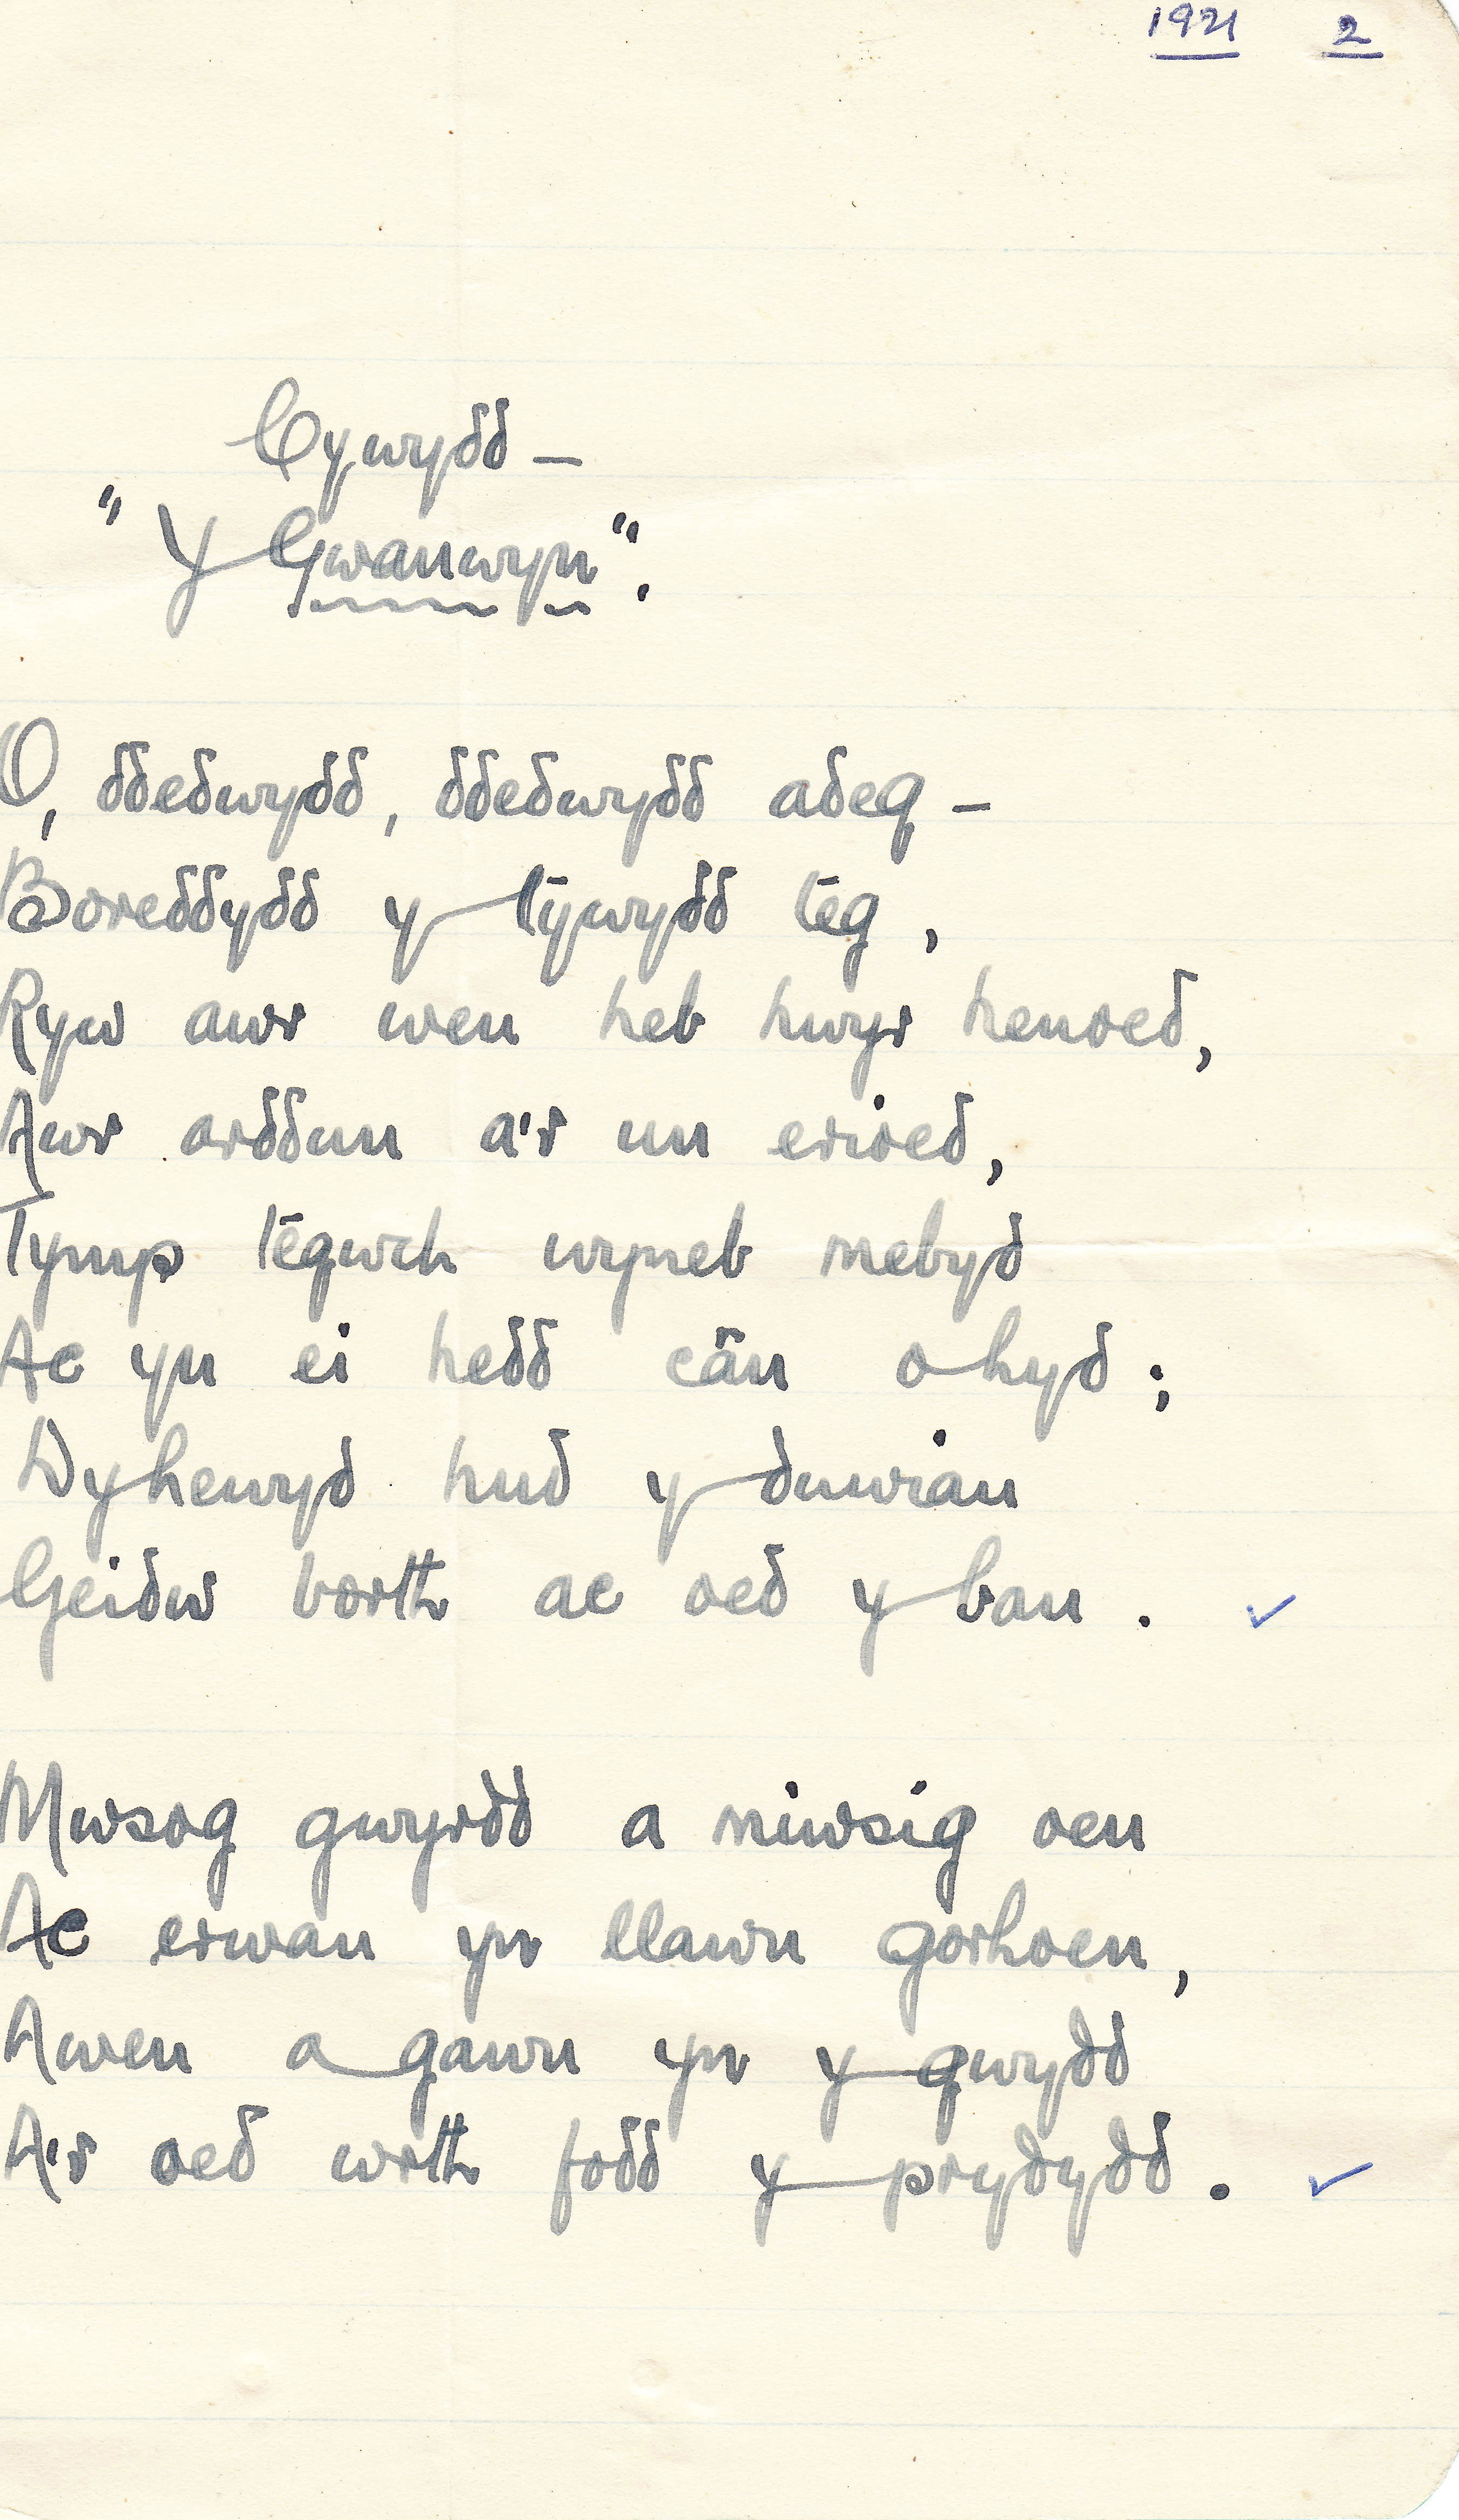 1921 2
Cywydd –
"Y Gwanwyn".
O, ddedwydd, ddedwydd adeg –
Boreddydd y tywydd teg,
Ryw awr wen heb hwyr henoed,
Awr arddun a'r un erioed,
Tymp tegwch wyneb mebyd
Ac yn ei hedd cân o hyd;
Dyhewyd hud y duwiau
Geidw borth ac oed y bau.
Mwsog gwyrdd a miwsig oen
Ac erwau yn llawn gorhoen,
Awen a gawn yn y gwydd
A'r oed wrth fodd y prydydd.